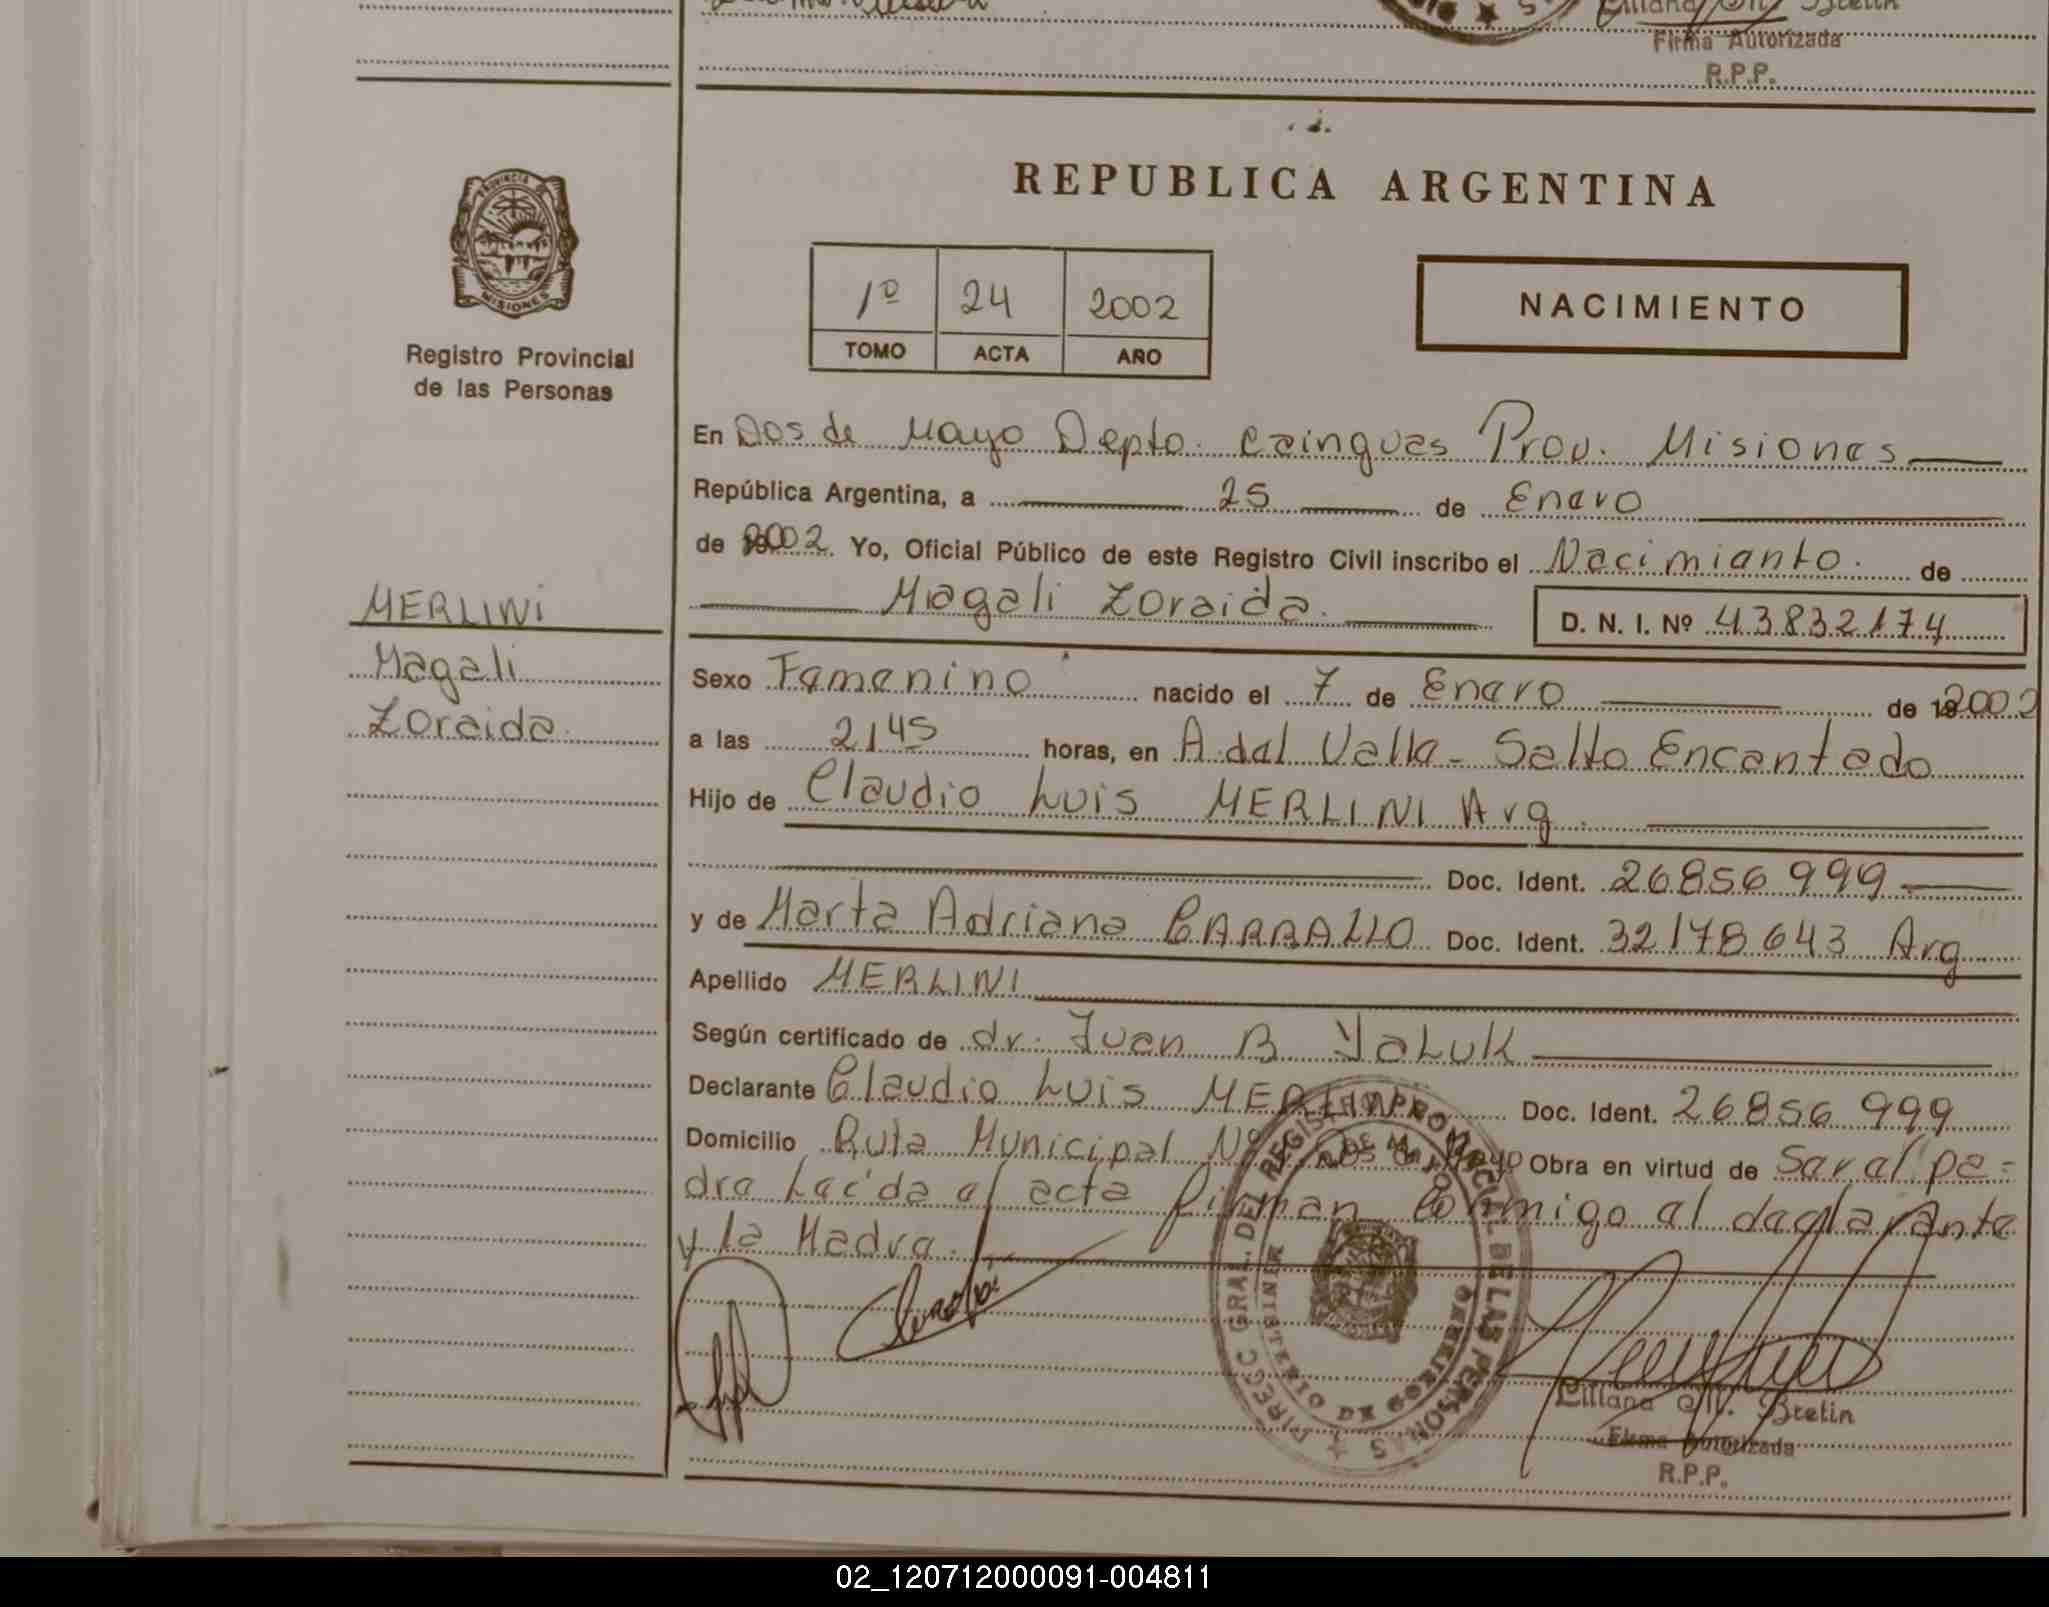 Liliana M. Bretin
Firma Autorizada
R.P.P.
PROVINCIA DE
MISIONES
Registro Provincial
de las Personas
REPUBLICA ARGENTINA
1º 24 2002
TOMO ACTA AÑO
NACIMIENTO
En Dos de Mayo Depto. Cainguas Prov. Misiones
República Argentina, a 25 de Enero
de 2002. Yo, Oficial Público de este Registro Civil inscribo el Nacimiento. de
Magali Zoraida.
D. N. I. Nº 43832174
MERLINI
Magali
Zoraida.
Sexo Femenino nacido el 7 de Enero de 2002
a las 21 45 horas, en A. del Valle - Salto Encantado
Hijo de Claudio Luis MERLINI Arg.
Doc. Ident. 26856999
y de Marta Adriana CARBALLO Doc. Ident. 32178643 Arg
Apellido MERLINI
Según certificado de dr. Juan B YaLuK
Declarante Claudio Luis MERLINI Doc. Ident. 26856999
Domicilio Ruta Municipal Nº Dos de Mayo Obra en virtud de Ser el pa-
dre Leída el acta firman conmigo el declarante
y la Madre.
DIRECC GRAL. DEL REGISTRO PROVINCIAL DE LAS PERSONAS
Liliana M. Bretin
Firma Autorizada
R.P.P.
02_120712000091-004811